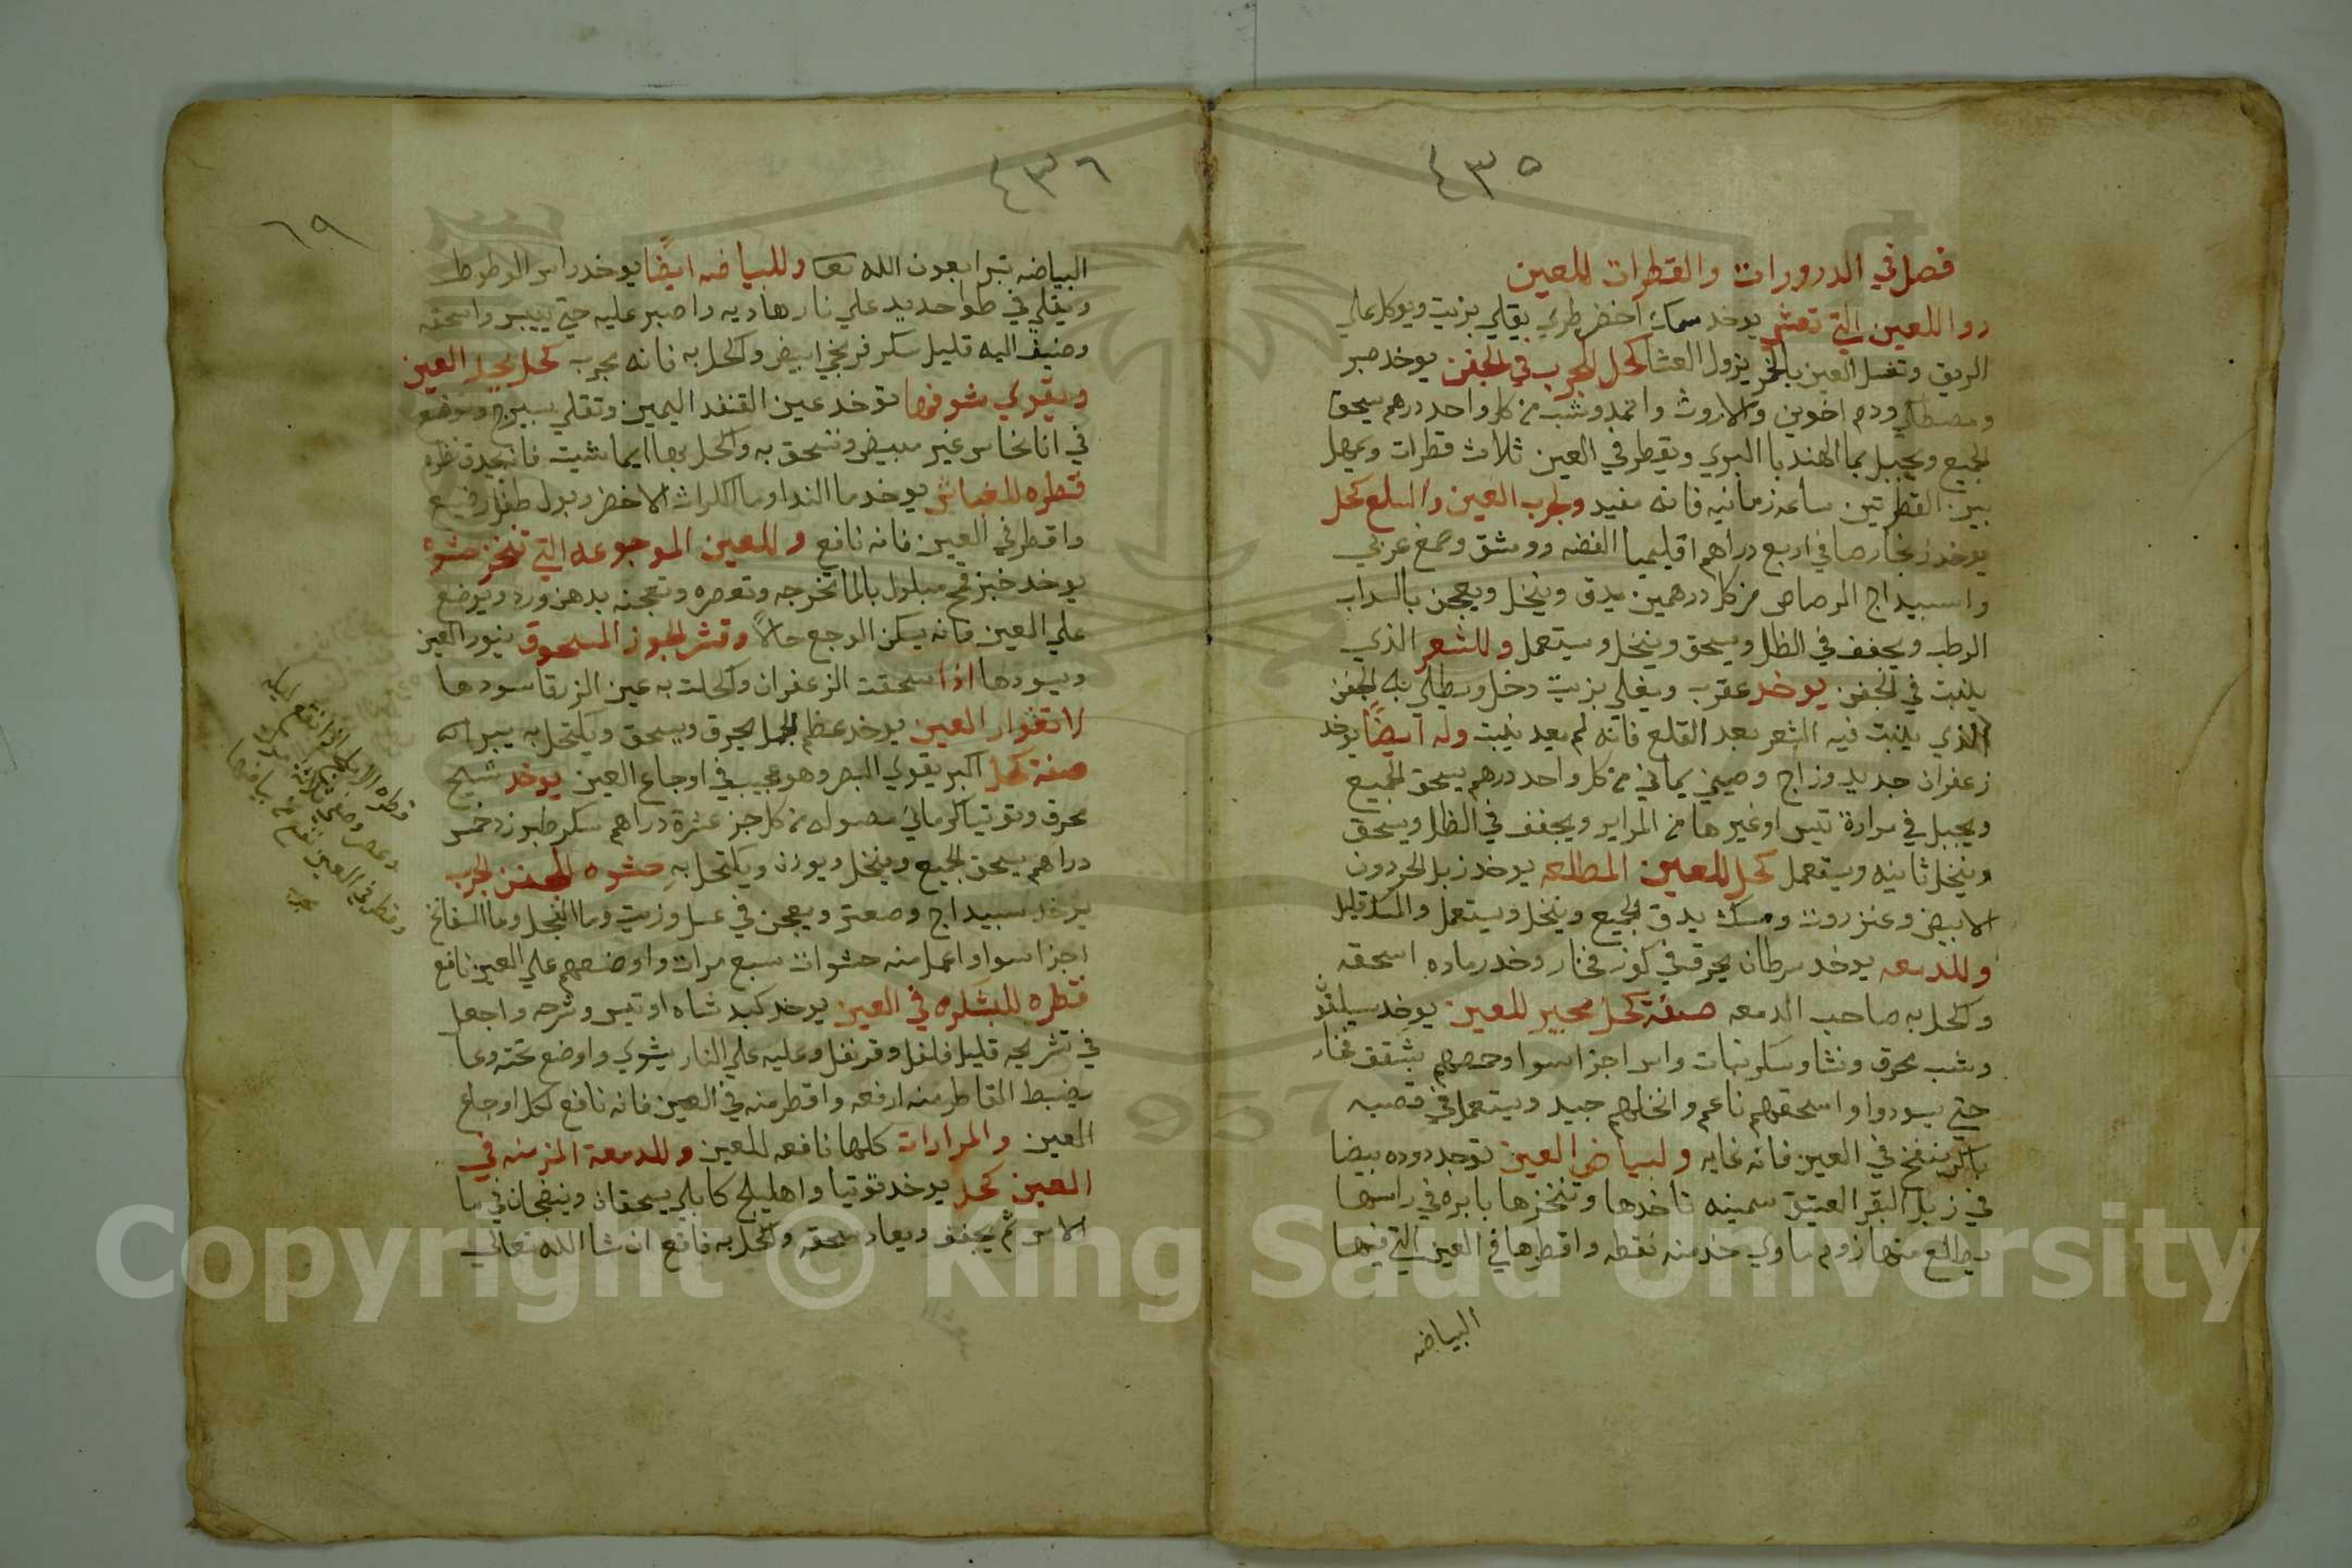 ٤٣٥
فصل في الدرورات والقطرات للعين
دوا للعين التي تعشي يوخد سمك اخضر طري يقلي بزيت ويوكل علي
الريق وتغسل العين بالخمر يزول العشا كحل لجرب في الجفن يوخد صبر
ومصطكي ودم اخوين والاروث واثمد وشب من كل واحد درهم يسحق
الجميع ويجبل بما الهندبا البري ويقطر في العين ثلاث قطرات ويمهل
بين القطرتين ساعه زمانيه فانه مفيد ولجرب العين والسلع كحل
يوخد زنجار صافي اربع دراهم اقليميا الفضه وومشق وصمغ عربي
واسبيداج الرصاص من كل درهمين يدق وينخل ويعجن بالسداب
الرطب ويجفف في الظل ويسحق وينخل ويستعمل وللشعر الذي
ينبت في الجفن يوخد عقرب ويغلي بزيت وخل ويطلي به الجفن
الذي ينبت فيه الشعر بعد القلع فانه لم يعد ينبت وله ايضًا يوخد
زعفران جديد وزاج وصيني يماني من كل واحد درهم يسحق الجميع
ويجبل في مرارة تيس او غيرها من المراير ويجفف في الظل ويسحق
وينخل ثانيه ويستعمل كحل للعين المطلعه يوخد زبل الحردون
الابيض وعنزروت ومسك يدق الجميع وينخل ويستعمل والمسك قليل
وللدمعه يوخد سرطان يحرق في كوز فخار وخد رماده اسحقه
وكحل به صاحب الدمعه صفة كحل مجير للعين يوخد سيلقون
وشب محرق ونشا وسكر نبات واس اجزا سوا وحمصهم بشقف فخار
حتي يسودوا واسحقهم ناعم وانخلهم جيد ويستعمل في قصبه
ينفخ في العين فانه غايه ولبياض العين توجد دوده بيضا
في زبل البقر العتيق سمينه تاخدها وتنخزها بابره في راسها
يطلع منها زوم ماوي خد منه نقطه واقطرها في العين التي فيها
البياض
٤٣٦
٦٩
البياض تبرا بعون الله تعا وللبياض ايضًا يوخد راس الوطوط
ويقلي في طوا حديد علي نار هاديه واصبر عليه حتي ييبس واسحقه
وضيف اليه قليل سكر فرنجي ابيض وكحل به فانه مجرب كحل يجلي العين
ويقوي شوفها توخد عين القنفد اليمين وتقلي بسيرج وتوضع
في انا نحاس غير مبيض وتسحق به واكحل بها ايما شيت فانه يحد نظره
قطره للغباش يوخد ما الندا وما الكراث الاخضر وبول طفل رضيع
واقطر في العين فانه نافع وللعين الموجوعه التي تنخز حشوه
يوخد خبز قمح مبلول بالما تخرجه وتعصره وتعجنه بدهن ورد ويوضع
علي العين فانه يسكن الوجع حالاً وقشر الجوز المسحوق ينور العين
ويسودها اذا سحقت الزعفران وكحلت به عين الزرقا سودها
لاتغوار العين يوخد عظم الجمل يحرق ويسحق ويكتحل به يبرا
صفة كحل اكبر يقوي البصر وهو عجيب في اوجاع العين يوخد شيح
محرق وتوتيا كرماني مصوله من كل جز عشرة دراهم سكر طبرزد خمس
دراهم يسحق الجميع وينخل ويوزن ويكتحل به حشوه للجفن الجرب
يوخد سبيداج وصعتر ويعجن في عسل وزيت وما الفجل وما السفانخ
اجزا سوا واعمل منه حشوات سبع مرات واوضعهم علي العين نافع
قطره للبشكره في العين يوخد كبد شاه او تيس وشرحه واجعل
في تشريحه قليل فلفل وقرنفل وعليه علي النار يشوي واوضع تحته وعا
يضبط القاطر منه ارفعه واقطر منه في العين فانه نافع لكل اوجاع
العين والمرارات كلها نافعه للعين وللدمعة المزمنه في
العين كحل يوخد توتيا واهليلج كابلي يسحقان وينضجان في ما
الاس ثم يجفف ويعاد سحقه واكحل به نافع ان شا الله تعالي